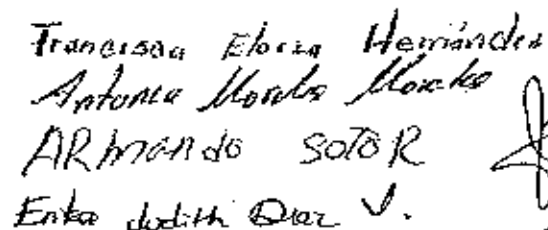 Francisca Elorza Hernández
Antonia Morales Morales
ARMANDO SOTO R
Erika Judith Diaz V.